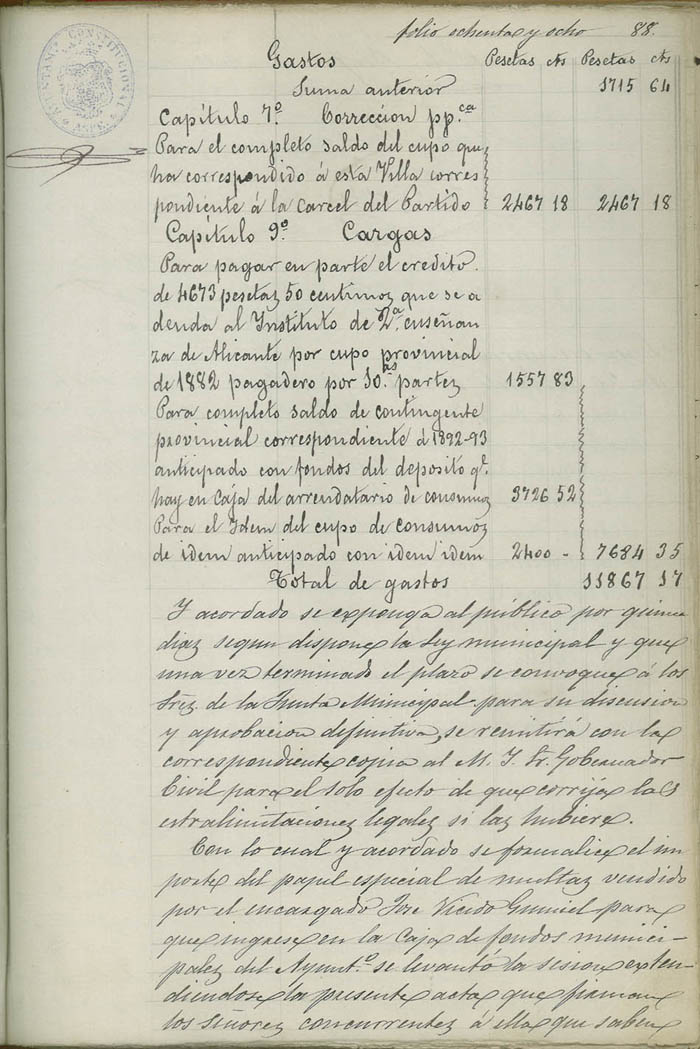 folio ochenta y ocho 88.
Gastos Pesetas cts Pesetas cts
Suma anterior 1715 64
Capítulo 7º Correccion pp.ca
Para el completo saldo del cupo que
ha correspondido á esta Villa corres
pondiente á la carcel del Partido 2467 18 2467 18
Capítulo 9º Cargas
Para pagar en parte el credito
de 4673 pesetas 50 centimos que se a
deuda al Instituto de 2ª enseñan
za de Alicante por cupo provincial
de 1882 pagadero por 10.as partes 1557 83
Para completo saldo de contingente
provincial correspondiente á 1892-93
anticipado con fondos del deposito q.e
hay en Caja del arrendatario de consumos 3726 52
Para el Idem del cupo de consumos
de idem anticipado con idem idem 2400 - 7684 35
Total de gastos 11867 17
Y acordado se exponga al público por quince
dias segun dispone la Ley municipal y que
una vez terminado el plazo se convoque á los
Sres de la Junta Municipal para su discusion
y aprobacion definitiva, se remitirá con la
correspondiente copia al M. I. Sr. Gobernador
Civil para el solo efecto de que corrija las
estralimitaciones legales si las hubiere.
Con lo cual y acordado se formalice el im
porte del papel especial de multas vendido
por el encargado José Vicedo Gumiel para
que ingrese en la Caja de fondos munici-
pales del Ayunt.º se levantó la sesion exten
diendose la presente acta que firman
los Señores concurrentes á ella que saben
AYUNTAMº CONSTITUCIONAL ASPE